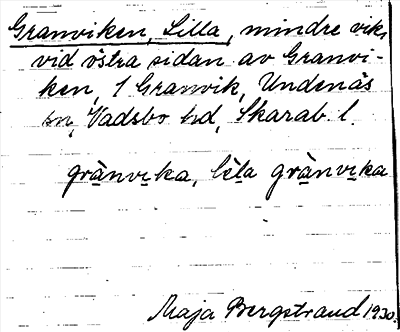 Granviken, Lilla, mindre vik,
vid östra sidan av Granvi-
ken, 1 Granvik, Undenäs
sn, Vadsbo hd, Skarab. l.
grànvịka, lèla grànvịka
Maja Bergstrand 1930.